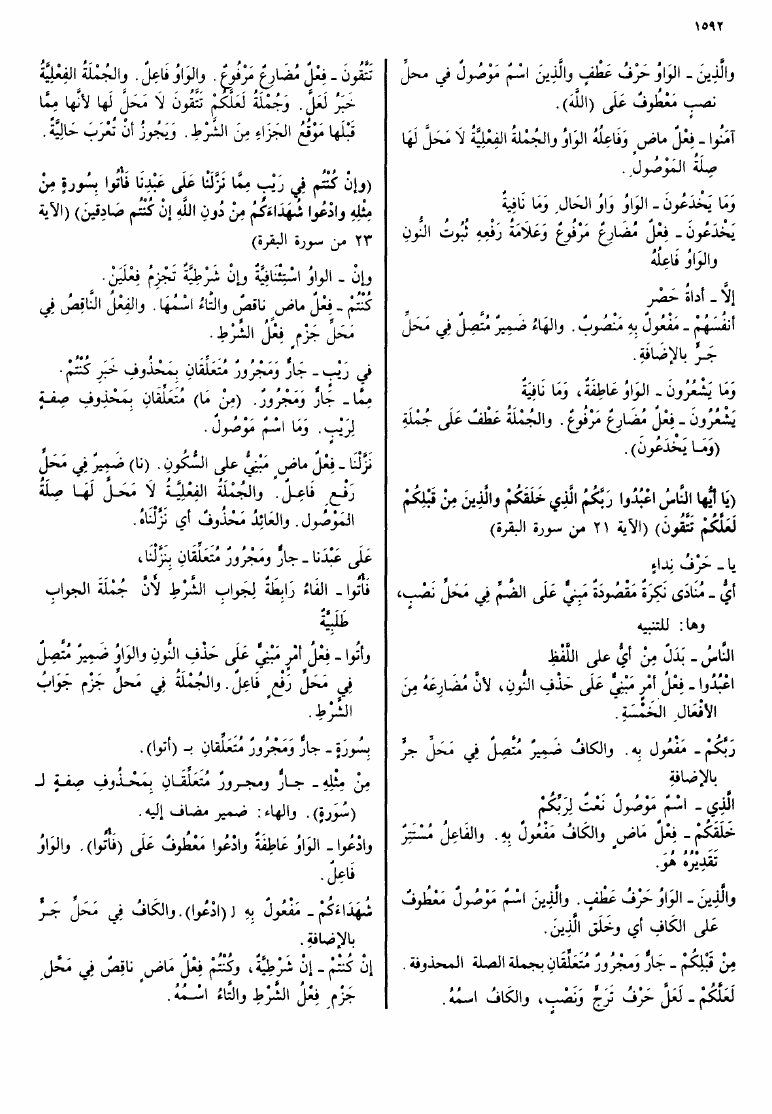 ١٥٩٢
والَّذِينَ ـ الوَاوُ حَرْفُ عَطْفٍ والَّذِينَ اسْمٌ مَوْصُولٌ في محلِّ
نصبٍ مَعْطُوفٌ عَلَى (اللَّهَ).
آمَنُوا ـ فِعْلٌ ماضٍ وَفَاعِلُهُ الوَاوُ والجُمْلةُ الفِعْلِيَّةُ لاَ مَحَلَّ لَهَا
صِلَةُ المَوْصُولِ.
وَمَا يَخْدَعُونَ ـ الوَاوُ وَاوُ الحَالِ وَمَا نَافِيَةٌ
يَخْدَعُونَ ـ فِعْلٌ مُضَارِعٌ مَرْفُوعٌ وَعَلاَمَةُ رَفْعِهِ ثُبُوتُ النُّونِ
والوَاوُ فَاعِلُهُ
إلاَّ ـ أداةُ حَصْر
أنفُسَهُمْ ـ مَفْعُولٌ بِهِ مَنْصُوبٌ. والهَاءُ ضَمِيرٌ مُتَّصِلٌ في مَحَلِّ
جَرٍّ بالإضَافَةِ.
وَمَا يَشْعُرُونَ ـ الوَاوُ عَاطِفَةٌ، وَمَا نَافِيَةٌ
يَشْعُرُونَ ـ فِعْلٌ مُضَارِعٌ مَرْفُوعٌ. والجُمْلَةُ عَطْفٌ عَلَى جُمْلَةِ
(وَمَا يَخْدَعُونَ).
(يَا أيُّها النَّاسُ اعْبُدُوا رَبَّكُمُ الَّذِي خَلَقَكُمْ والَّذِينَ مِنْ قَبْلِكُمْ
لَعَلَّكُمْ تَتَّقُونَ) (الآية ٢١ من سورة البقرة)
يا ـ حَرْفُ نِداءٍ
أيُّ ـ مُنَادَى نَكِرَةٌ مَقْصُودَةٌ مَبنِيٌّ عَلَى الضَّمِّ في مَحَلِّ نَصْبٍ،
وها: للتنبيه
النَّاسُ ـ بَدَلٌ مِنْ أيُّ على اللَّفْظِ
اعْبُدُوا ـ فِعْلُ أمْرٍ مَبْنِيٌّ عَلَى حَذْفِ النُّونِ، لأنَّ مُضَارِعَهُ مِنَ
الأفْعَالِ الخَمْسَةِ.
رَبَّكُمْ ـ مَفْعُول بِهِ. والكافُ ضَمِيرٌ مُتَّصِلٌ فِي مَحَلِّ جَرٍّ
بالإضافةِ
الَّذِي ـ اسْمٌ مَوْصُولٌ نَعْتٌ لِرَبَّكُمْ
خَلَقَكُمْ ـ فِعْلٌ مَاضٍ والكَافُ مَفْعُولٌ بِهِ. والفَاعِلُ مُسْتَتِرٌ
تَقْدِيْرُهُ هُوَ.
والَّذِينَ ـ الوَاوُ حَرْفُ عَطْفٍ. والَّذِينَ اسْمٌ مَوْصُولٌ مَعْطُوفٌ
عَلى الكَافِ أي وخَلَقَ الَّذِينَ.
مِنْ قَبْلِكُمْ ـ جَارٌّ وَمَجْرُورٌ مُتَعَلِّقَانِ بجملة الصلة المحذوفة.
لَعَلَّكُمْ ـ لَعَلَّ حَرْفُ تَرَجٍّ وَنَصْبٍ، والكَافُ اسمُهُ.
تَتَّقُونَ ـ فِعْلٌ مُضَارِعٌ مَرْفُوعٌ. والوَاوُ فَاعِلٌ. والجُمْلَةُ الفِعْلِيَّةُ
خَبَرُ لَعَلَّ. وَجُمْلَةُ لَعَلَّكُمْ تَتَّقُونَ لاَ مَحَلَّ لها لأنَّها مِمَّا
قَبْلَها مَوْقِعُ الجَزَاءِ مِنَ الشَّرْطِ. وَيَجُوزُ أنْ تُعْرَبَ حَالِيَّةً.
(وإنْ كُنْتُم فِي رَيْبٍ مِمَّا نَزَّلْنَا عَلَى عَبْدِنَا فَأْتُوا بِسُورةٍ مِنْ
مِثْلِهِ وادْعُوا شُهَدَاءَكُمْ مِنْ دُونِ اللَّهِ إنْ كُنْتُم صَادِقِينَ) (الآية
٢٣ من سورة البقرة)
وإنْ ـ الواوُ اسْتِئْنَافِيَّةٌ وإنْ شَرْطِيَّةٌ تَجْزِمُ فِعْلَيْنْ.
كُنْتُمْ ـ فِعْلٌ ماضٍ ناقصٌ والتَّاءُ اسْمُهَا. والفِعْلُ النَّاقِصُ فِي
مَحَلِّ جَزْمٍ فِعْلُ الشَّرْطِ.
في رَيْبٍ ـ جَارٌّ وَمَجْرُورٌ مُتَعَلِّقَانِ بِمَحْذُوفِ خَبَرِ كُنْتُمْ.
مِمَّا ـ جَارٌّ وَمَجْرُورٌ. (مِنْ مَا) مُتَعَلِّقَانِ بِمَحْذُوفِ صِفَةٍ
لِرَيْبٍ. وَمَا اسْمٌ مَوْصُولٌ.
نَزَّلْنَا ـ فِعْلٌ ماضٍ مَبْنِيٌّ على السُّكُونِ. (نا) ضَمِيرٌ فِي مَحَلِّ
رَفْعٍ فَاعِلٌ. والجُمْلَةُ الفِعْلِيَّةُ لاَ مَحَلَّ لَهَا صِلَةُ
المَوْصُولِ. والعَائِدُ مَحْذُوفٌ أي نَزَّلْنَاهُ.
عَلَى عَبْدِنا ـ جارٌّ ومَجْرُورٌ مُتَعَلِّقَانِ بِنَزَّلْنَا،
فَأْتُوا ـ الفَاءُ رَابِطَةٌ لِجَوابِ الشَّرْطِ لأَنَّ جُمْلَةَ الجوابِ
طَلَبِيَّةٌ
وأتُوا ـ فِعْلُ أمْرٍ مَبْنِيٌّ عَلَى حَذْفِ النُّونِ والوَاوُ ضَمِيرٌ مُتَّصِلٌ
فِي مَحَلِّ رَفْعٍ فَاعِلٌ. والجُمْلَةُ فِي مَحَلِّ جَزْم جَوَابُ
الشَّرْطِ.
بِسُورَةٍ ـ جارٌّ وَمَجْرُورٌ مُتَعَلِّقانِ بـ (أتوا).
مِنْ مِثْلِهِ ـ جارٌّ ومجرورٌ مُتَعَلِّقَانِ بِمَحْذُوفِ صِفةٍ لـ
(سُورَةٍ). والهاء: ضمير مضاف إليه.
وادْعُوا ـ الوَاوُ عَاطِفَةٌ وادْعُوا مَعْطُوفٌ عَلَى (فَأْتُوا). والوَاوُ
فَاعِلٌ.
شُهَدَاءَكُمْ ـ مَفْعُولٌ بِهِ لـ (ادْعُوا). والكَافُ فِي مَحَلِّ جَرٍّ
بالإضافةِ.
إنْ كُنتُمْ ـ إنْ شَرْطِيَّةٌ، وكُنْتُمْ فِعْلٌ مَاضٍ ناقِصٌ فِي مَحَّلِ
جَزْمِ فِعْلُ الشَّرْطِ والتَّاءُ اسْمُهُ.